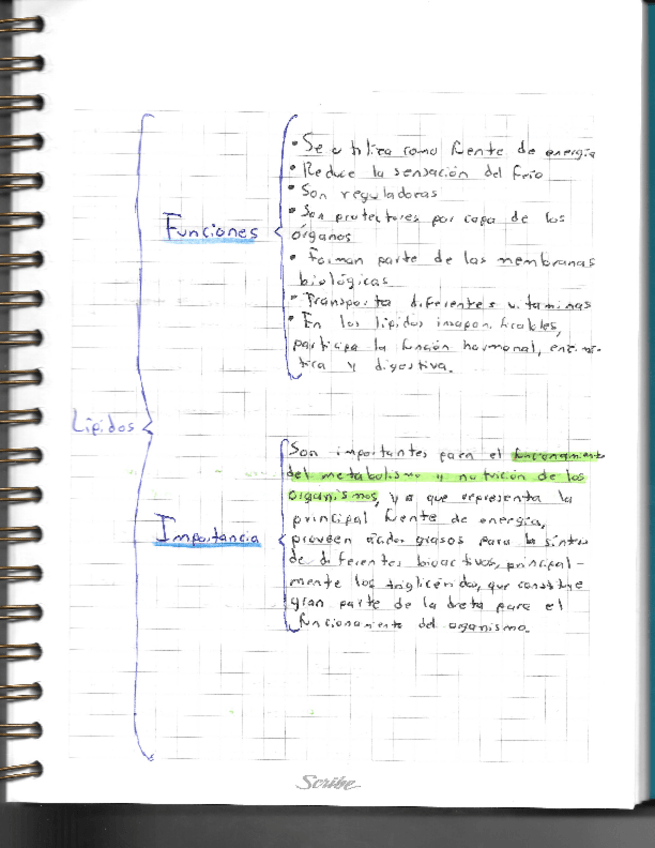 • Se utiliza como fuente de energía
• Reduce la sensación del frío
• Son reguladoras
• Son protectores por capa de los
órganos
Funciones
• Forman parte de las membranas
biológicas
• Transporta diferentes vitaminas
• En los lípidos insaponificables,
participa la función hormonal, enzimá-
tica y digestiva.
Lípidos
Son importantes para el funcionamiento
del metabolismo y nutrición de los
organismos, ya que representa la
principal fuente de energía,
Importancia
proveen ácidos grasos para la síntesis
de diferentes bioactivos, principal-
mente los triglicéridos, que constituye
gran parte de la dieta para el
funcionamiento del organismo.
Scribe